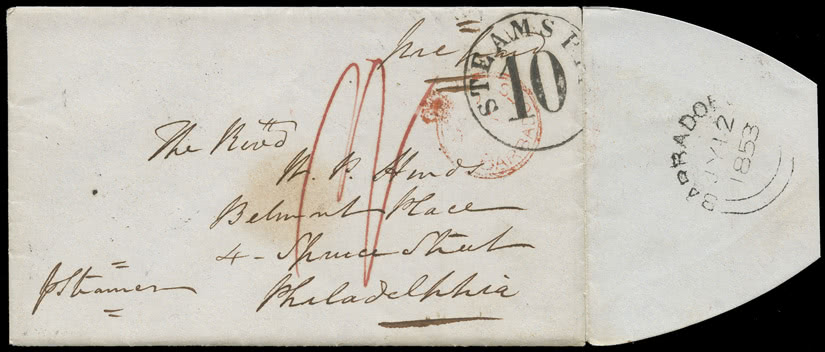 STEAMSHIP
10
The Rev'd
W. P. Hinds
Belmont Place
4 - Spruce Street
Philadelphia
p Steamer
BARBADOES
JY 12
1853